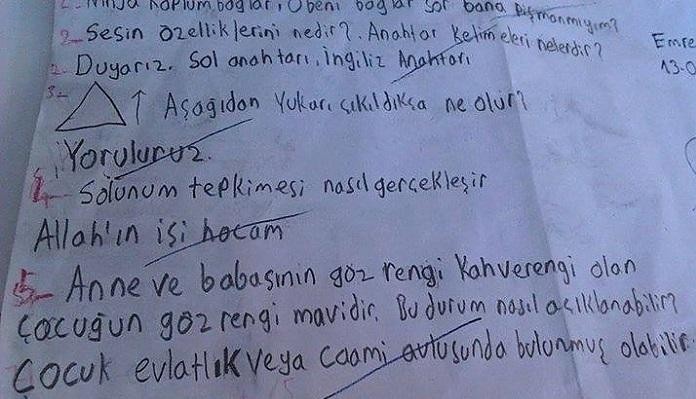 Ninja Kaplumbağlar, Obeni bağlar sor bana pişmanmıyım?
2- Sesin özelliklerini nedir? Anahtar kelimeleri nelerdir?
2- Duyarız. Sol anahtarı, İngiliz Anahtarı
3- ↑ Aşağıdan Yukarı çıkıldıkça ne olur?
Yoruluruz.
4- Solunum tepkimesi nasıl gerçekleşir
Allah'ın işi hocam
5- Anne ve babasının göz rengi Kahverengi olan
çocuğun göz rengi mavidir. Bu durum nasıl açıklanabilir?
Çocuk evlatlık veya Caami avlusunda bulunmuş olabilir.
Emre
13-0